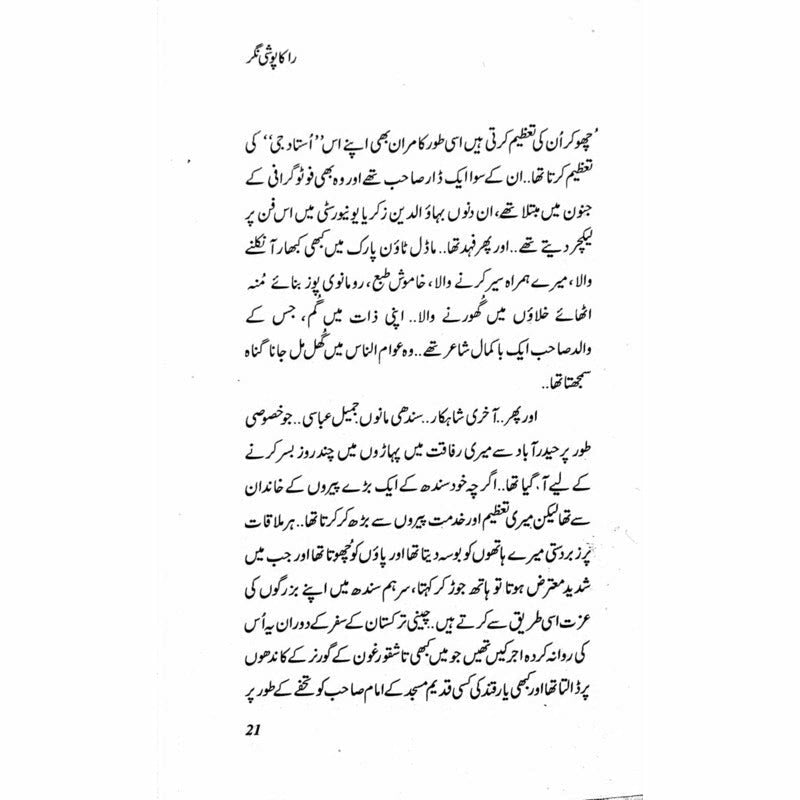 راکاپوشی نگر
چُھو کر اُن کی تعظیم کرتی ہیں اسی طور کامران بھی اپنے اس ’’اُستاد جی‘‘ کی
تعظیم کرتا تھا.. ان کے سوا ایک ڈار صاحب تھے اور وہ بھی فوٹو گرافی کے
جنون میں مبتلا تھے، ان دنوں بہاؤ الدین زکریا یونیورسٹی میں اس فن پر
لیکچر دیتے تھے.. اور پھر فہد تھا.. ماڈل ٹاؤن پارک میں کبھی کبھار آ نکلنے
والا، میرے ہمراہ سیر کرنے والا، خاموش طبع، رومانوی پوز بنائے مُنہ
اٹھائے خلاؤں میں گُھورنے والا.. اپنی ذات میں گُم، جس کے
والد صاحب ایک باکمال شاعر تھے.. وہ عوام الناس میں گُھل مل جانا گناہ
سمجھتا تھا..
اور پھر.. آخری شاہکار.. سندھی مانوں جمیل عباسی.. جو خصوصی
طور پر حیدر آباد سے میری رفاقت میں پہاڑوں میں چند روز بسر کرنے
کے لیے آ گیا تھا.. اگرچہ خود سندھ کے ایک بڑے پیروں کے خاندان
سے تھا لیکن میری تعظیم اور خدمت پیروں سے بڑھ کر کرتا تھا.. ہر ملاقات
پر زبردستی میرے ہاتھوں کو بوسہ دیتا تھا اور پاؤں کو چُھوتا تھا اور جب میں
شدید معترض ہوتا تو ہاتھ جوڑ کر کہتا، سر ہم سندھ میں اپنے بزرگوں کی
عزت اسی طریق سے کرتے ہیں.. چینی ترکستان کے سفر کے دوران یہ اُس
کی روانہ کردہ اجرکیں تھیں جو میں کبھی تاشقورغون کے گورنر کے کاندھوں
پر ڈالتا تھا اور کبھی یارقند کی کسی قدیم مسجد کے امام صاحب کو تحفے کے طور پر
21